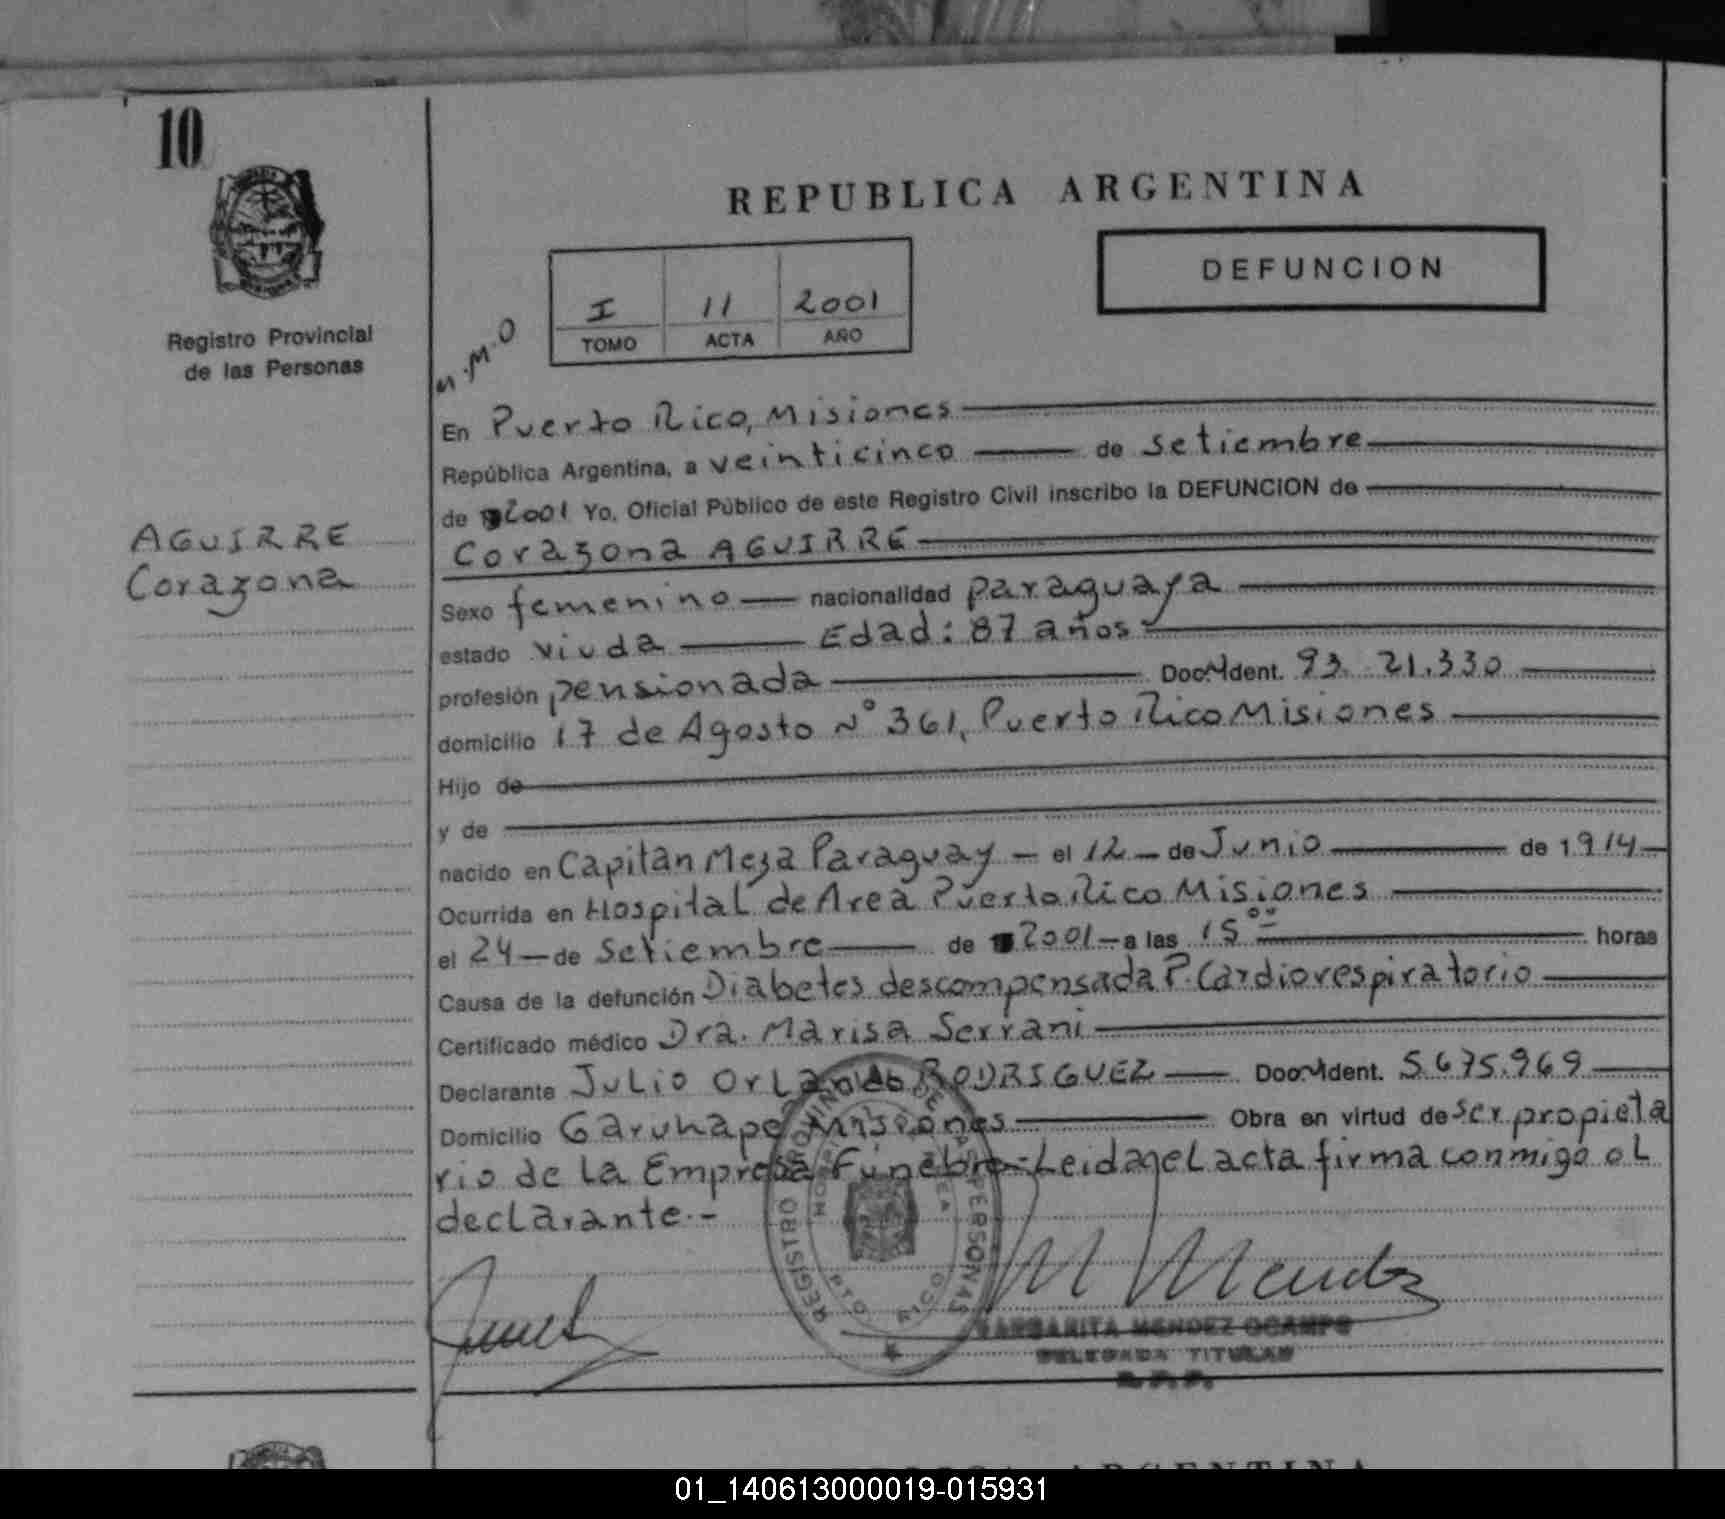 10
REPUBLICA ARGENTINA
DEFUNCION
I 11 2001
TOMO ACTA AÑO
Registro Provincial
de las Personas
M.M.O
En Puerto Rico, Misiones
República Argentina, a veinticinco de setiembre
de 2001 Yo, Oficial Público de este Registro Civil inscribo la DEFUNCION de
AGUIRRE
Corazona
Corazona AGUIRRE
Sexo femenino nacionalidad paraguaya
estado viuda Edad: 87 años
profesión pensionada Doc. Ident. 93. 21.330
domicilio 17 de Agosto N° 361, Puerto Rico Misiones
Hijo de
y de
nacido en Capitán Meza Paraguay - el 12 - de Junio de 1914
Ocurrida en Hospital de Area Puerto Rico Misiones
el 24 - de Setiembre de 2001 - a las 15°° horas
Causa de la defunción Diabetes descompensada P. Cardiorespiratorio
Certificado médico Dra. Marisa Serrani
Declarante JULIO ORLANDO RODRIGUEZ Doc. Ident. 5.675.969
Domicilio Garuhape Misiones Obra en virtud de ser propieta
rio de la Empresa Funebre. Leida el acta firma conmigo el
declarante.-
REGISTRO PROVINCIAL DE LAS PERSONAS
PTO RICO
M Mendez
MARGARITA MENDEZ OCAMPO
DELEGADA TITULAR
R.P.P.
ARGENTINA
01_140613000019-015931